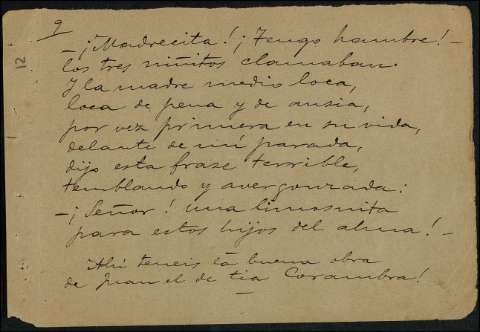 9
12
—¡Madrecita! ¡Tengo hambre!—
los tres niñitos clamaban.
Y la madre medio loca,
loca de pena y de ansia,
por vez primera en su vida,
delante de mí parada,
dijo esta frase terrible,
temblando y avergonzada:
—¡Señor! una limosnita
para estos hijos del alma!—
Ahí teneis la buena obra
de Juan el de tia Corambra!